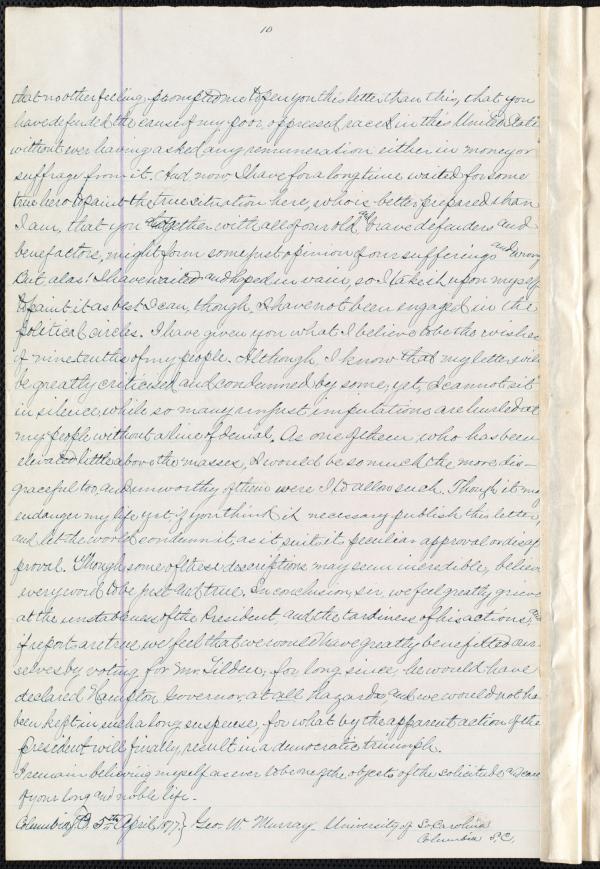 10
that no other feeling, prompted me to pen you this letter than this, that you
have defended the cause of my poor, oppressed race, in this United State
without ever having asked any remuneration either in money or
suffrage from it. And now, I have for a long time waited for some
true hero to paint the true situation here, who is better prepared than
I am, that you together with all of our old and brave defenders and
benefactors, might form some just opinion of our sufferings and wrong
But, alas! I have waited and hoped in vain, so I take it upon myself
to paint it as best I can, though, I have not been engaged in the
political circles. I have given you what I believe to be the wishes
of nine tenths of my people. Although, I know that my letter, will
be greatly criticised and condemned by some, yet, I cannot sit
in silence, while so many unjust imputations are hurled at
my people without a line of denial. As one of them, who has been
elevated little above the masses, I would be so much the more dis-
graceful too, and unworthy of them were I to allow such. Though it may
endanger my life yet if you think it necessary publish this letter,
and let the world condemn it, as it suits its peculiar approval or disap
proval. Though some of these descriptions may seem incredible, believe
every word to be just and true. In conclusion, sir, we feel greatly grieve
at the unstableness of the President, and the tardiness of his actions, and
if reports are true we feel that we would have greatly benefitted our-
selves by voting for Mr. Tilden; for long since, he would have
declared Hampton Governor, at all hazards and we would not ha
been kept in such a long suspense, for what by the apparent action of the
President will finally, result in a democratic triumph.
I remain believing myself as ever to be one of the objects of the solicitude and care
of your long and noble life.
Columbia, S.C. 5th April, 1877.} Geo. W. Murray. University of So. Carolina
Columbia S.C.